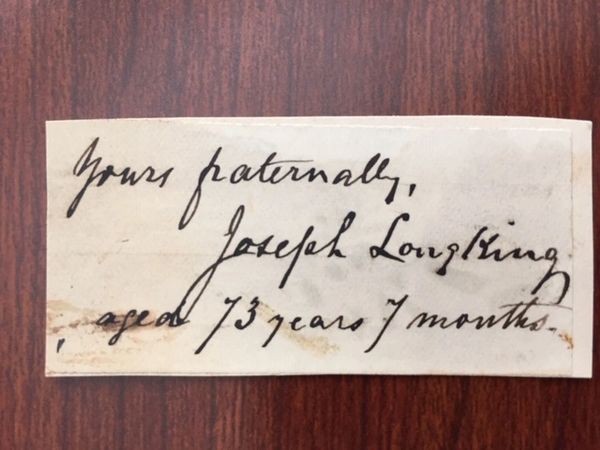 Yours fraternally,
Joseph Longking
, aged 73 years 7 months.